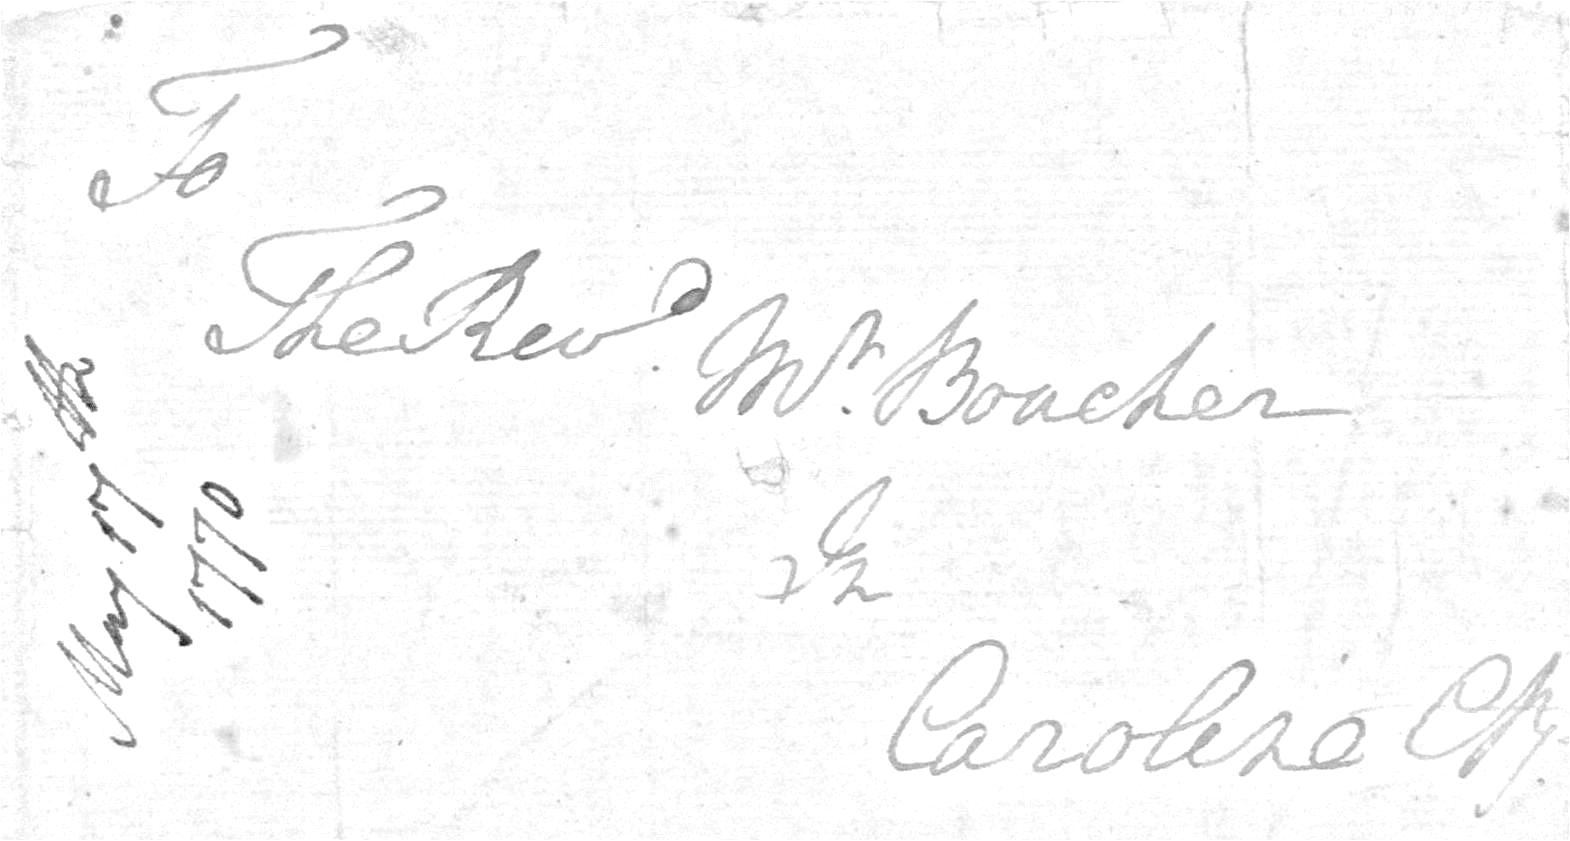 To
The Revd. Mr. Boucher
In
Caroline Cty
May 17th
1770